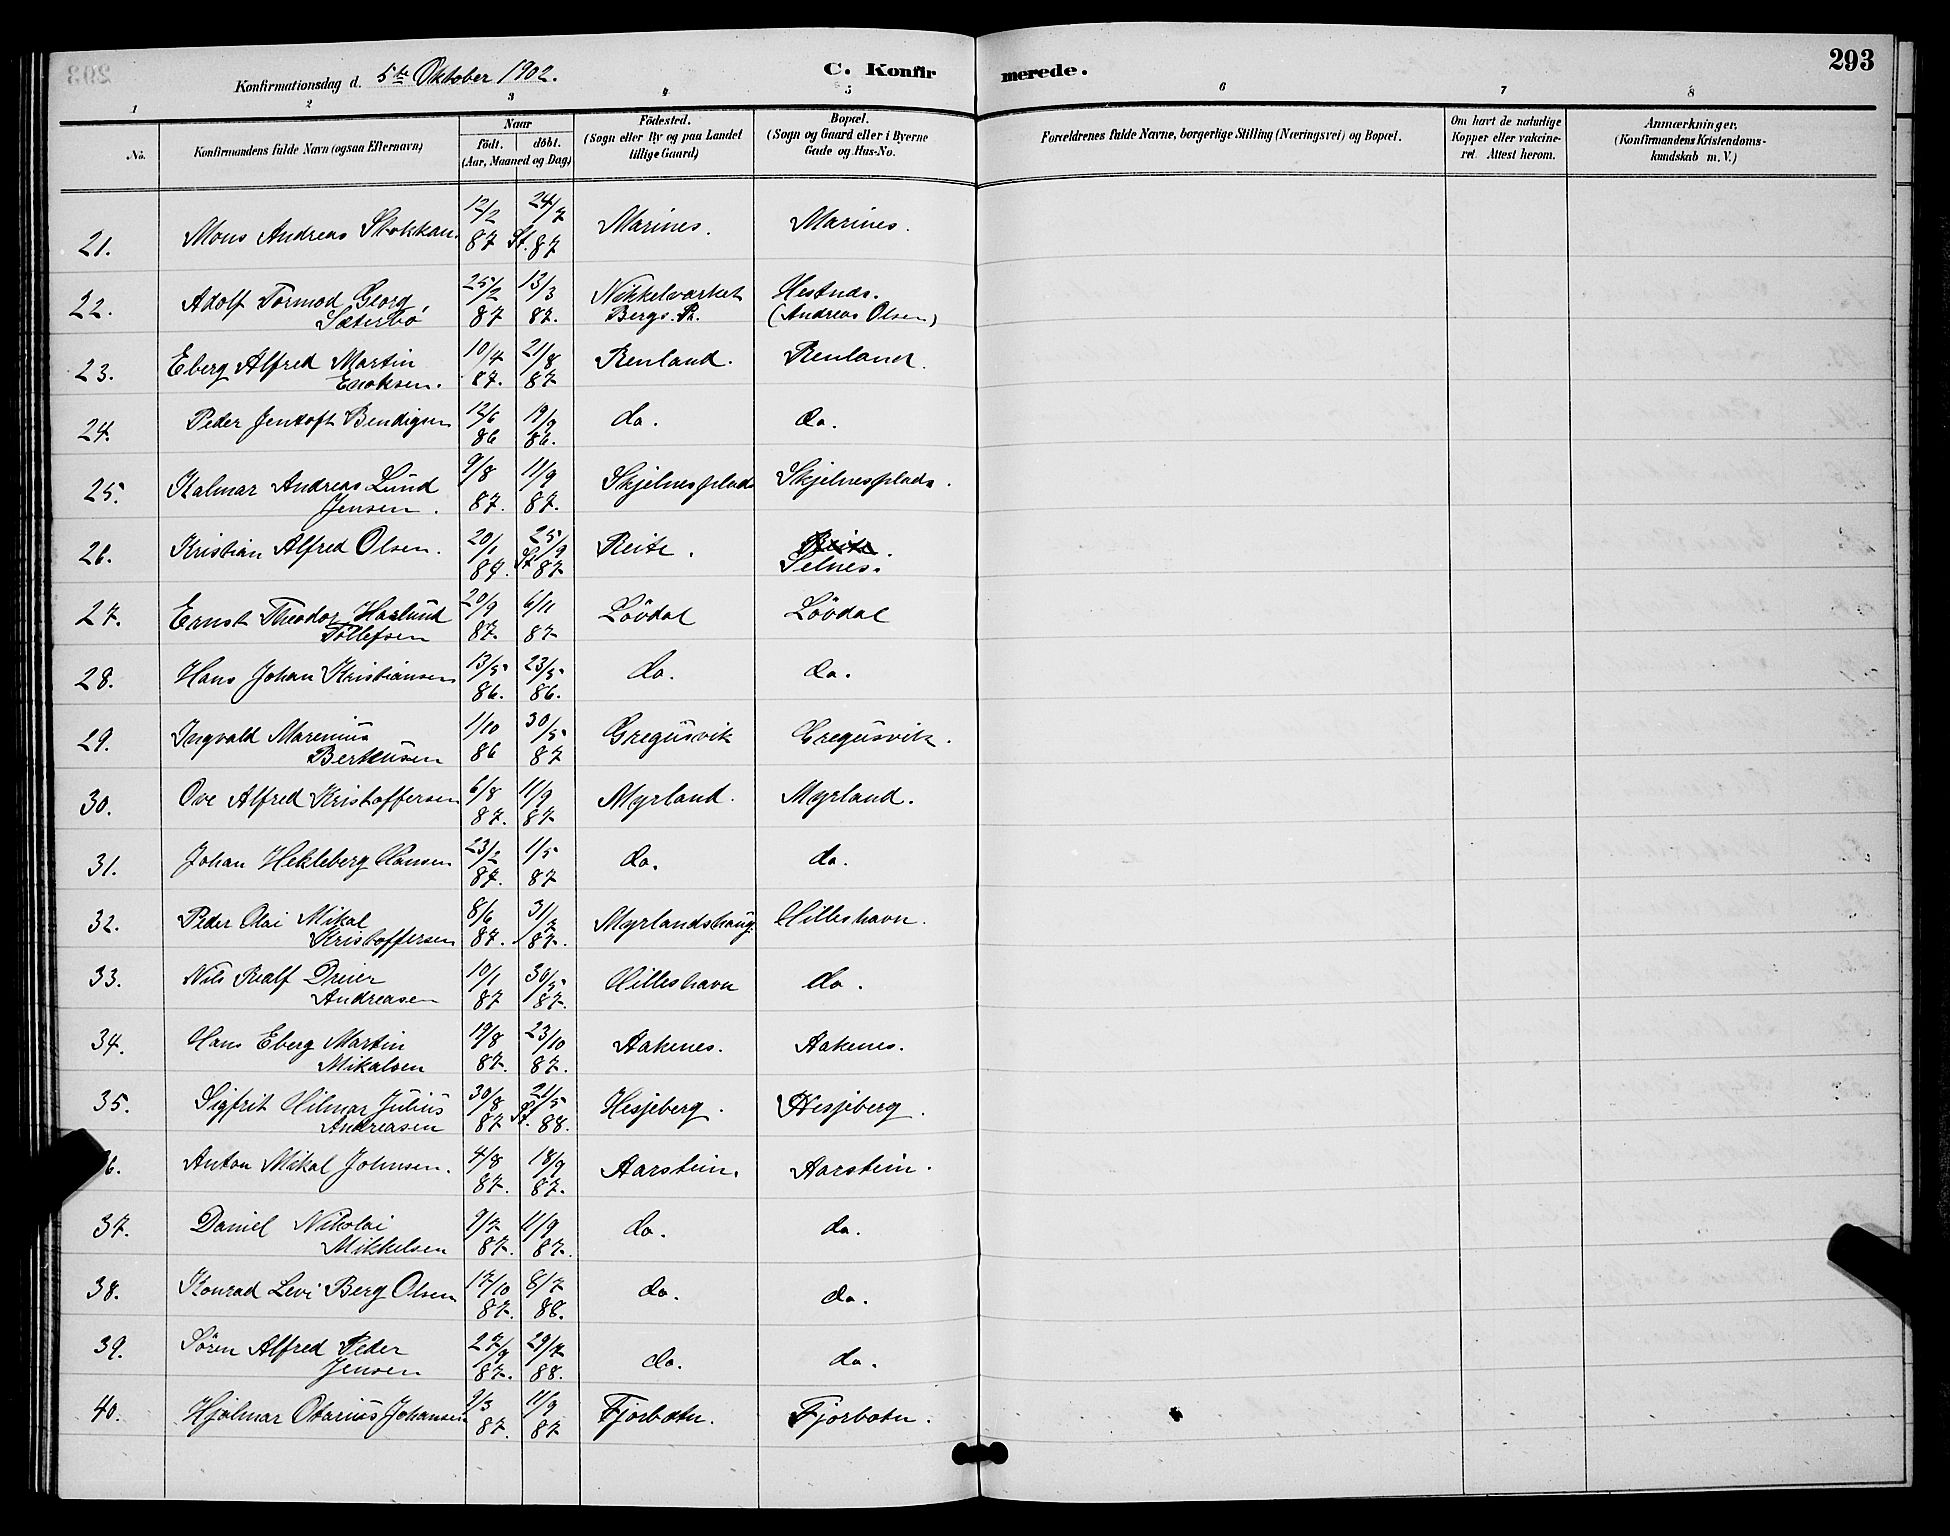 293
Konfirmationsdag d. 5te Oktober 1902.
C. Konfirmerede.
1 2 3 4 5 6 7 8
No.
Konfirmandens fulde Navn (ogsaa Efternavn)
Naar
födt. döbt.
(Aar, Maaned og Dag)
Födested.
(Sogn eller By og paa Landet
tillige Gaard)
Bopæl.
(Sogn og Gaard eller i Byerne
Gade og Hus-No.
Forældrenes fulde Navne, borgerlige Stilling (Næringsvei) og Bopæl.
Om havt de naturlige
Kopper eller vakcine-
ret. Attest herom.
Anmærkninger.
(Konfirmandens Kristendoms-
kundskab m. V.)
21. Mons Andreas Stokkan. 12/2 87 24/7 St. 87 Marines. Marines.
22. Adolf Tormod Georg 25/2 13/3 Nikkelværket Hestnes.
Sæterbö 87 87. Bergs. Pr. (Andreas Olsen)
23. Eberg Alfred Martin 10/4 21/8 Renland. Renland.
Enoksen. 87. 87
24. Peder Jentoft Bendigsen 12/6 86 19/9 86. do. do.
25. Halmar Andreas Lund 9/8 11/9 Skjelnesplads Skjelnesplads.
Jensen. 87. 87.
26. Kristian Alfred Olsen. 20/1 87. 25/9 St 87 Reite. Reite.
Selnes.
27. Ernst Theodor Haslund 20/9 6/11 Lövdal Lövdal
Tollefsen 87. 87
28. Hans Johan Kristiansen 13/5 86. 23/5 86. do. do.
29. Ingvald Marenius 1/10 30/5 Gregusvik Gregusvik.
Bertheusen 86 87
30. Ove Alfred Kristoffersen 6/8 87. 11/9 87 Myrland. Myrland.
31. Johan Hekleberg Hansen 23/2 87. 1/5 87 do. do.
32. Peder Olai Mikal 8/6 31/7 Myrlandshaug. Hilleshavn.
Kristoffersen 87. 87.
33. Nils Realf Dreier 10/1 30/5 Hilleshavn do.
Andreasen 87 87.
34. Hans Eberg Martin 19/8 23/10 Aakenes. Aakenes.
Mikalsen 87. 87.
35. Sigfrit Hilmar Julius 30/8 21/5 Hesjeberg. Hesjeberg.
Andreasen 87 St. 88.
6. Anton Mikal Johnsen. 4/8 87. 18/9 87. Aarstein. Aarstein.
37. Daniel Nikolai 9/7 11/9 do. do.
Mikkelsen 87. 87.
38. Konrad Levi Berg Olsen 17/10 87. 8/7 88. do. do.
39. Sören Alfred Peder 27/9 29/7 do. do.
Jensen 87. 88.
40. Hjalmar Otarius Johansen 9/3 87. 11/9 87 Fjorbotn. Fjorbotn.